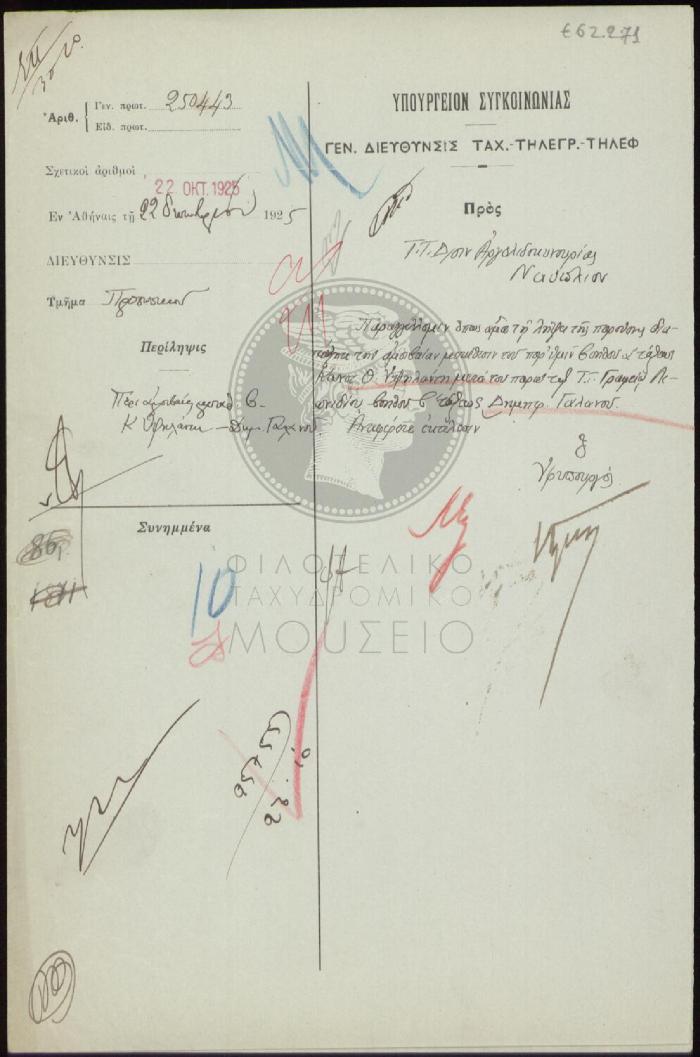 Ε62.2.71
Ἀριθ.
Γεν. πρωτ. 250443
Εἰδ. πρωτ.
Σχετικοὶ ἀριθμοὶ
22 ΟΚΤ. 1925
Ἐν Ἀθήναις τῇ 22 Ὀκτωβρίου 1925
ΔΙΕΥΘΥΝΣΙΣ
Τμῆμα Προσωπικοῦ
Περίληψις
Περὶ ἀμοιβαίας
Κ. Ὑψηλάντη – Δημ. Γαλάνου
Συνημμένα
10
ΥΠΟΥΡΓΕΙΟΝ ΣΥΓΚΟΙΝΩΝΙΑΣ
ΓΕΝ. ΔΙΕΥΘΥΝΣΙΣ ΤΑΧ.-ΤΗΛΕΓΡ.-ΤΗΛΕΦ
Πρὸς
Τ.Τ. Δ/σιν Ἀργολιδοκυνουρίας
Ναύπλιον
Παραγγέλλομεν ὅπως ἅμα τῇ λήψει τῆς παρούσης
τὴν ἀμοιβαίαν μετάθεσιν τοῦ παρ' ὑμῖν βοηθοῦ τάξεως
Κων. Θ. Ὑψηλάντη μετὰ τοῦ παρὰ τῷ Τ.Τ. Γραφείῳ
βοηθοῦ τάξεως Δημητρ. Γαλάνου.
Ἀναφέρατε ἐκτέλεσιν
Ὁ
Ὑπουργός
ΦΙΛΟΤΕΛΙΚΟ
ΤΑΧΥΔΡΟΜΙΚΟ
ΜΟΥΣΕΙΟ